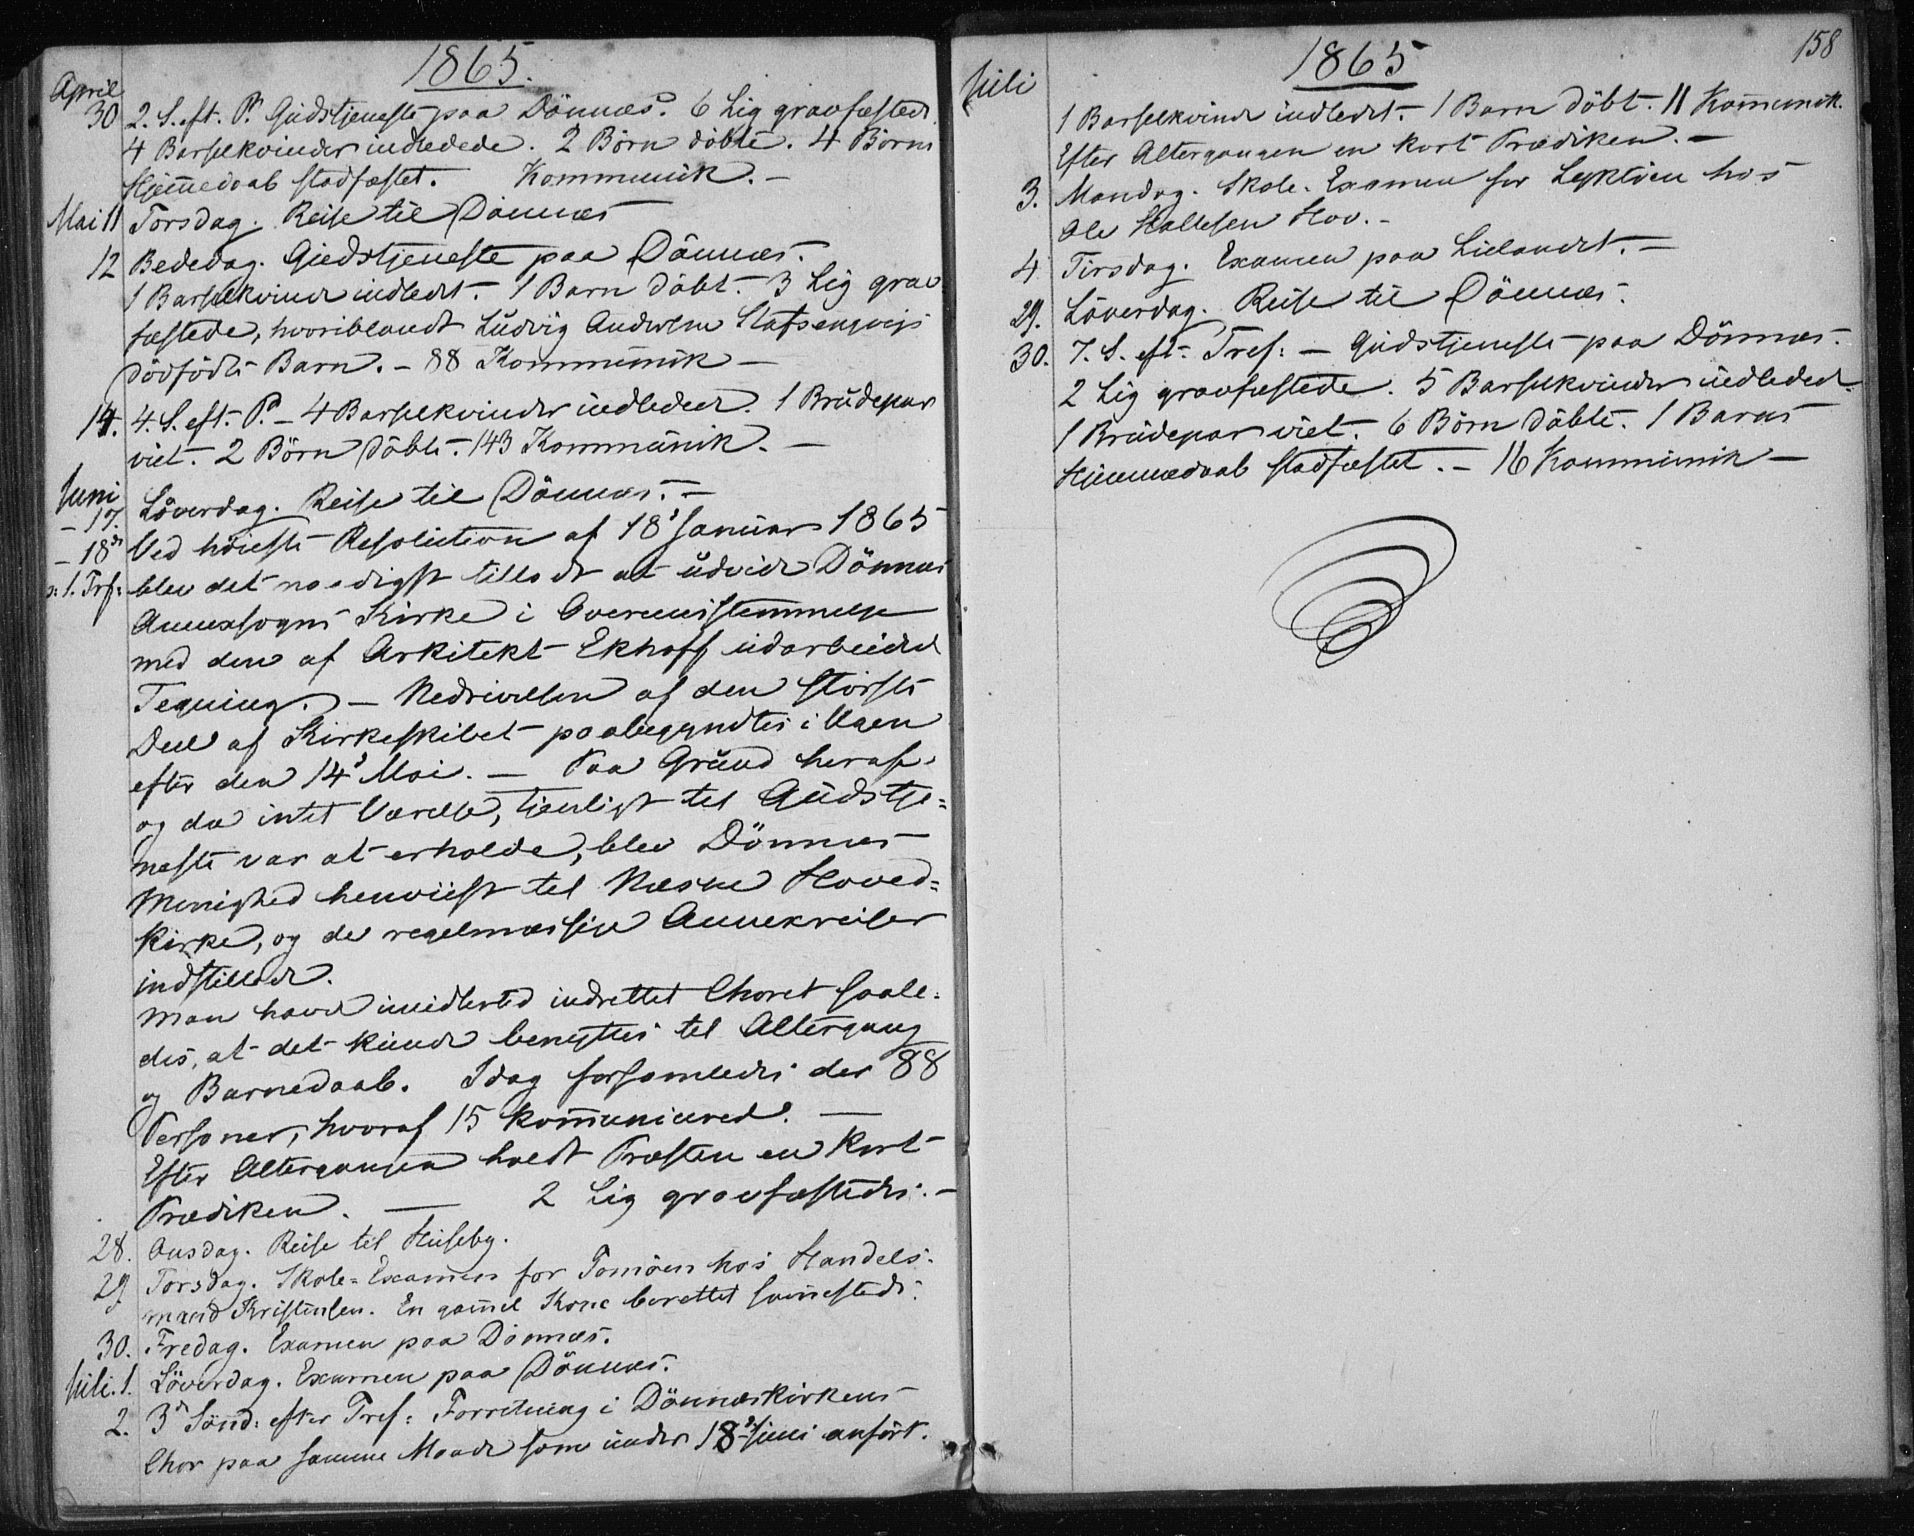 1865.
April
30 2. S. eft. P. Gudstjeneste paa Dönnæs. 6 Lig gravfæstede.
4 Barselkvinder indledede. 2 Börn döbte. 4 Börns
Hjemmedaab stadfæstet. Kommunik. –
Mai 11 Torsdag. Reise til Dönnæs
12 Bededag. Gudstjeneste paa Dönnæs.
1 Barselkvinde indledet. – 1 Barn döbt. – 3 Lig grav
fæstede, hvoriblandt Ludvig Andersen
dödfödte Barn. – 88 Kommunik –
14. 4. S. eft. P. – 4 Barselkvinder indledede. 1 Brudepar
viet. – 2 Börn döbte. – 143 Kommunik. –
Juni
– 17. Löverdag. Reise til Dönnæs. –
– 18de Ved höieste Resolution af 18de Januar 1865
2. S. Trf: blev det naadigst tilladt at udvide Dönnæs
Annexsogns Kirke i Overensstemmelse
med den af Arkitekt Ekhoff udarbeidede
Tegning. – Nedrivelsen af den störste
Deel af Kirkeskibet paabegyndtes i Ugen
efter den 14de Mai. – Paa Grund heraf,
og da intet Værelse, tjenligt til Gudstje=
neste var at erholde, blev Dönnæs
Menighed henviist til Næsne Hoved=
kirke, og de regelmæssige Annexreiser
indstillede.
Man havde imidlertid indrettet Choret saale=
des, at det kunde benyttes til Altergang
og Barnedaab. Idag forsamledes der 88
Personer, hvoraf 15 kommunicerede. –
Efter Altergangen holdt Præsten en kort
Prædiken. – 2 Lig gravfæstedes. –
28. Onsdag. Reise til Huseby.
29 Torsdag. Skole=Examen for Tomöen hos Handels=
mand Kristensen. En gammel Kone berettet sammesteds.
30. Fredag. Examen paa Dönnæs.
Juli. 1. Löverdag. Examen paa Dönnæs.
2. 3de Sönd: efter Tref: Forretning i Dönnæskirkens
Chor paa samme Maade som under 18de Juni anfört.
158
1865
Juli
1 Barselkvinde indledet. – 1 Barn döbt. 11 Kommunik.
Efter Altergangen en kort Prædiken. –
3. Mandag. Skole-Examen for Lyktöen hos
Ole Hallesen Hov. –
4. Tirsdag. Examen paa Lielandet. –
29. Löverdag. Reise til Dönnæs.
30. 7. S. eft. Tref: – Gudstjeneste paa Dönnæs. –
2 Lig gravfæstede. 5 Barselkvinder indledede.
1 Brudepar viet. 6 Börn döbte. 1 Barns
Hjemmedaab stadfæstet. – 16 Kommunik –